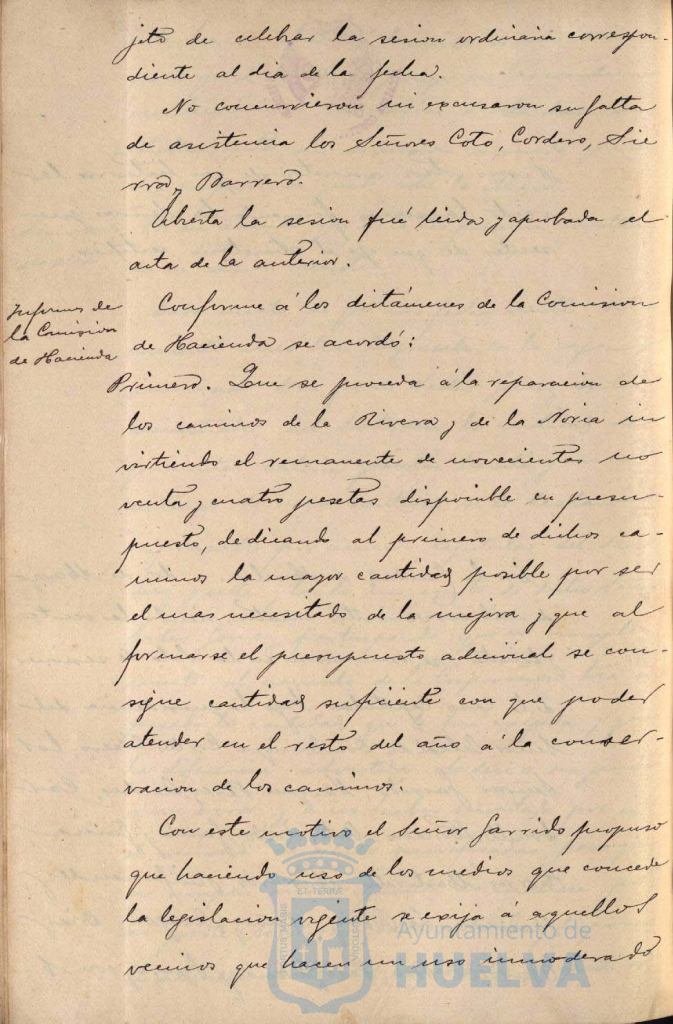 jeto de celebrar la sesion ordinaria correspon-
diente al dia de la fecha.
No concurrieron ni excusaron su falta
de asistencia los Señores Coto, Cordero, Sie
rra y Barrero.
Abierta la sesion fué leida y aprobada el
acta de la anterior.
Informes de
la Comision
de Hacienda
Conforme á los dictámenes de la Comision
de Hacienda se acordó:
Primero. Que se proceda á la reparacion de
los caminos de la Rivera y de la Noria in
virtiendo el remanente de novecientas no
venta y cuatro pesetas disponible en presu-
puesto, dedicando al primero de dichos ca-
minos la mayor cantidad posible por ser
el mas necesitado de la mejora y que al
formarse el presupuesto adicional se con-
signe cantidad suficiente con que poder
atender en el resto del año á la conser-
vacion de los caminos.
Con este motivo el Señor Garrido propuso
que haciendo uso de los medios que concede
la legislacion vigente se exija á aquellos
vecinos que hacen un uso inmoderado
Ayuntamiento de
HUELVA